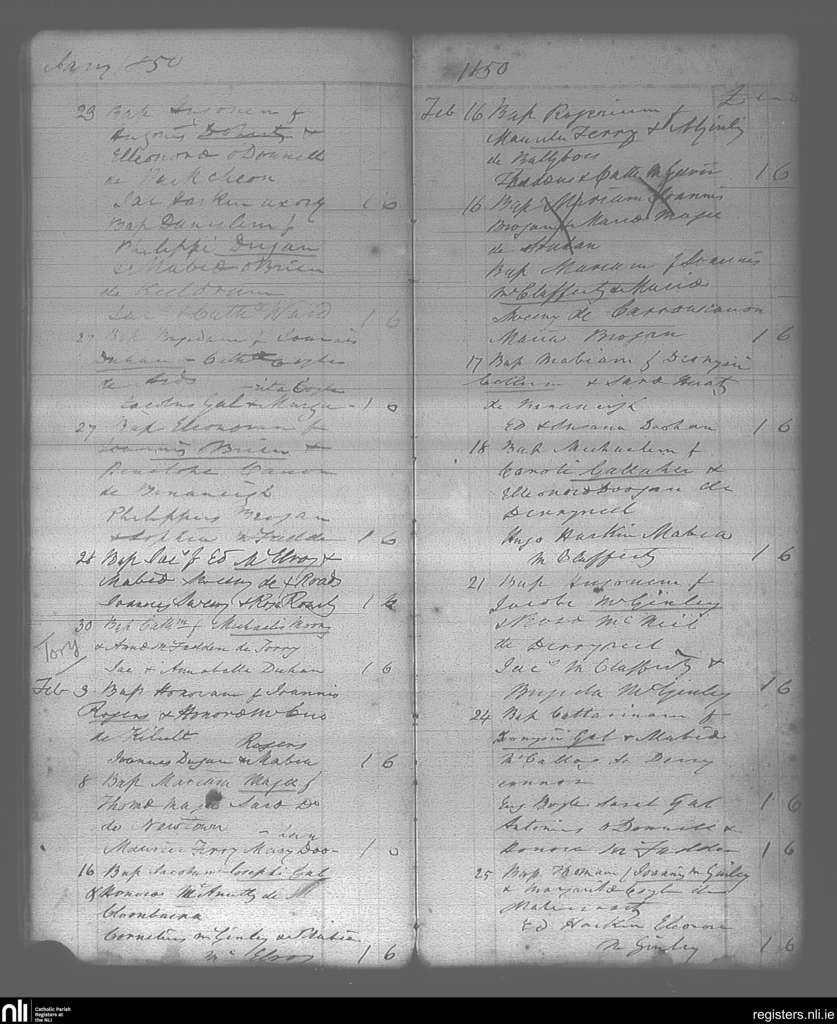 Jany 1850
23 Bap Hugonem f
Eugenii Doherty &
Elleonoræ O'Donnell
de Parkcheon
Jac Harkin uxorq 1 6
Bap Danielem f
Philippi Dugan
& Mabiæ O'Brien
de Kildrum
Jac & Cath Ward 1 6
27 Bap Brigidam f Joannis
Duhan & Cath Coyle
de Ards
Jacobus Gal & Marga- 1 0
rita Coyle
27 Bap Eleonoram f
Joannis O'Brien &
Penelope Cannon
de Binaneigh
Philippus Brogan
& Sophia McFadden 1 6
28 Bap Jac f Ed McElroy &
Mabiæ Sweeny de X Roads
Joannes Sweeny & Rose Roarty 1 6
Tory
30 Bap Cathm f Michaelis Noony
& Annæ McFadden de Torry
Jac & Annabella Duhan 1 6
Feb 3 Bap Honoram f Joannis
Rogers & Honoræ McCue
de Kilult
Rogers
Joannes Dugan & Mabia 1 6
8 Bap Mariam Magee f
Thomæ Magee Saræ Do
de Newtown
Maurice Ferry Mary Doo- 1 0
gan
16 Bap Jacobum Josephi Gal
& Honoræ McAnulty de
Cloonbarra
Cornelius McGinley & Mabia
McElroy 1 6
1850
£
Feb 16 Bap Rogerium f
Mauritii Ferry & McGinley
de Ballyboes
Thadeus & Cath McGinn 1 6
16 Bap Mariam Joannis
Brogan & Mariæ Magee
de
Bap Mariam f Joannis
McClafferty & Mariæ
Sweeny de Carrowcanon
Maria Brogan 1 6
17 Bap Mabiam f Dionysii
& Saræ
de Binaneigh
Ed & Susana Doohan 1 6
18 Bap Michaelem f
Caroli Gallaher &
Elleonoræ Doogan de
Derryreel
Hugo Harkin Mabia
McClafferty 1 6
21 Bap Hugonem f
Jacobi McGinley
& Rosæ McNeil
de Derryreel
Jac McClafferty &
Brigida McGinley 1 6
24 Bap Catharinam f
Dionysii Gal & Mabiæ
McCallog de Derry
connor
Eug Boyle Sarah Gal 1 6
Antonius O'Donnell &
Honora McFadden 1 6
25 Bap Thomam f Joannis McGinley
& Margaritæ Coyle de
Ed Harkin Eleonora
McGinley 1 6
nli
Catholic Parish
Registers at
the NLI
registers.nli.ie